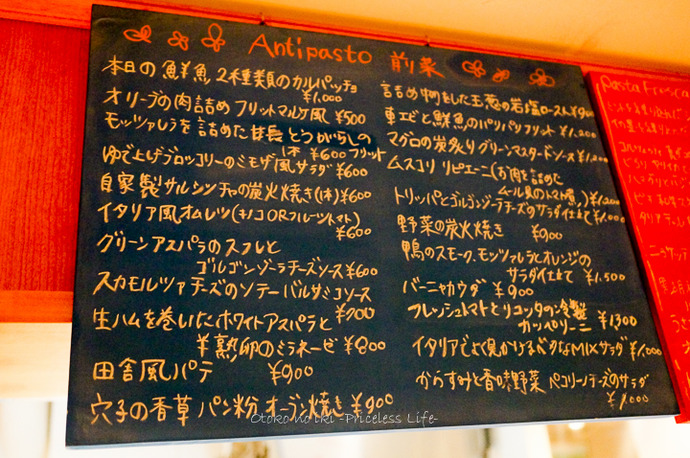 Antipasto 前菜
本日の鮮魚、2種類のカルパッチョ
¥1,000
オリーブの肉詰め フリットマルケ風 ¥500
モッツァレラを詰めた とうがらしの
1本 ¥600 フリット
ゆで上げブロッコリーのミモザ風サラダ ¥600
自家製サルシッチャの炭火焼き(1本)¥600
イタリア風オムレツ(キノコORフルーツトマト)
¥600
グリーンアスパラのスフレと
ゴルゴンゾーラチーズソース ¥600
スカモルツァチーズのソテー バルサミコソース
¥700
生ハムを巻いたホワイトアスパラと
半熟卵のミラネーゼ ¥800
田舎風パテ ¥900
穴子の香草パン粉オーブン焼き ¥900
詰め物をした玉葱の岩塩ロースト ¥900
車エビと鮮魚のパリパリフリット ¥1,200
マグロの炭炙り グリーンマスタードソース ¥1,200
ムスコリ リピエーニ(お肉を詰めた
ムール貝のトマト煮)¥1,200
トリッパとゴルゴンゾーラチーズのサラダ仕立て ¥1,000
野菜の炭火焼き ¥900
鴨のスモーク、モッツァレラとオレンジの
サラダ仕立て ¥1,500
バーニャカウダ ¥900
フレッシュトマトとリコッタの冷製
カッペリーニ ¥1300
イタリアでよく見かけるベタなMIXサラダ ¥1,000
からすみと香味野菜 ペコリーノチーズのサラダ
¥1,000
Pasta Fresca
Otoko no iki -Priceless Life-